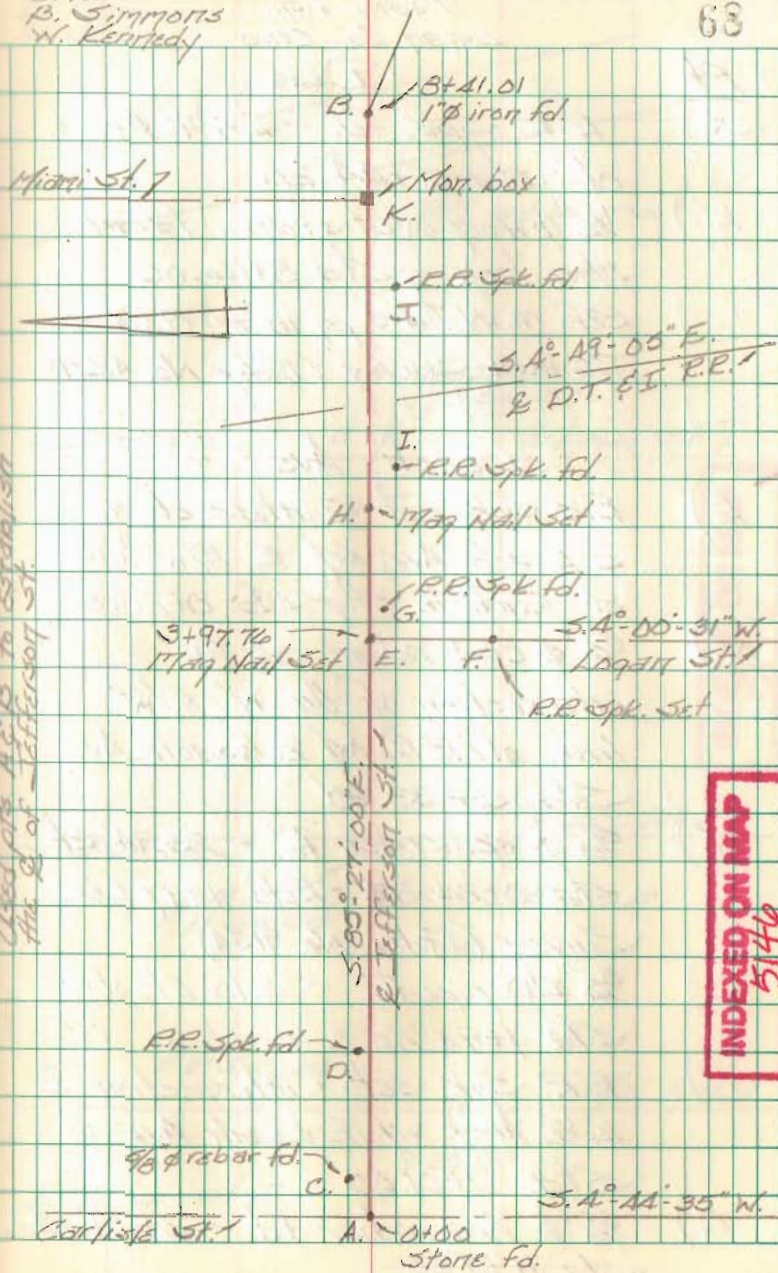 B. Simmons
W. Kennedy
68
8+41.01
B. 1"ø iron fd.
Miami St.
Mon. box
K.
R.R. Spk. fd.
J.
S. 4°-49'-05" E.
℄ D.T. & I. R.R.
I.
R.R. Spk. fd.
H. Mag Nail Set
R.R. Spk. fd.
G.
3+97.76
Mag Nail Set E. F.
S. 4°-00'-31" W.
Logan St.
R.R. Spk. Set
Used pts A & B to establish
the ℄ of Jefferson St.
S. 85°-27'-00" E.
℄ Jefferson St.
INDEXED ON MAP
5146
R.R. Spk. fd.
D.
5/8"ø rebar fd.
C.
S. 4°-44'-35" W.
Carlisle St.
A. 0+00
Stone fd.